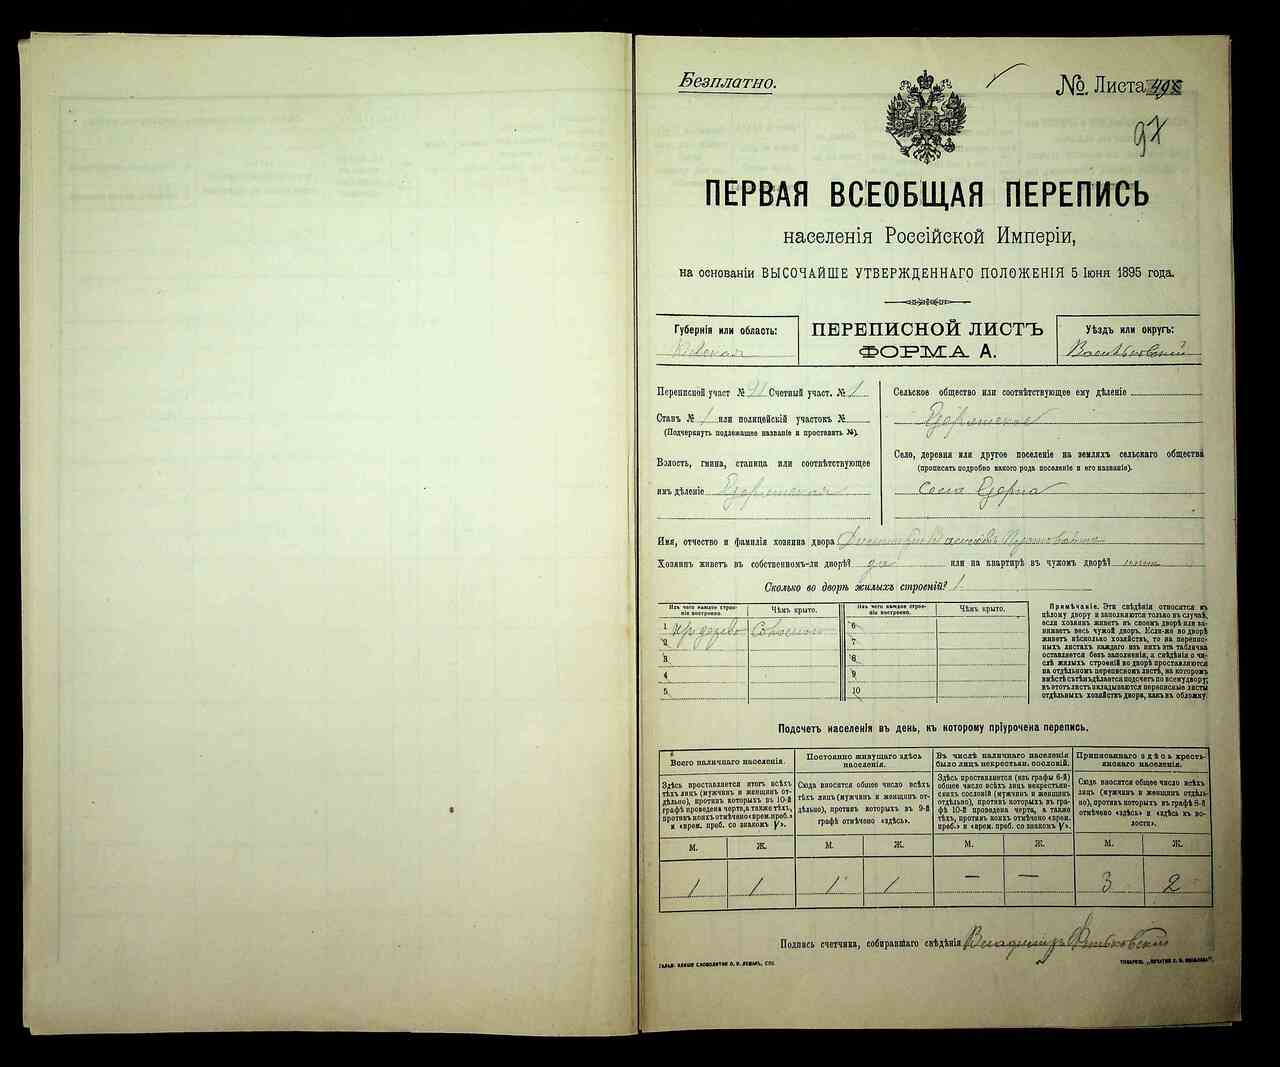 Безплатно.
№. Листа
97
ПЕРВАЯ ВСЕОБЩАЯ ПЕРЕПИСЬ
населенія Россійской Имперіи,
на основаніи ВЫСОЧАЙШЕ УТВЕРЖДЕННАГО ПОЛОЖЕНІЯ 5 Іюня 1895 года.
Губернія или область:
Кіевская
ПЕРЕПИСНОЙ ЛИСТЪ
ФОРМА А.
Уѣздъ или округъ:
Васильковскій
Переписной участ № Счетный участ. № 1
Станъ № 1 или полицейскій участокъ №
(Подчеркнуть подлежащее названіе и проставить №).
Волость, гмина, станица или соотвѣтствующее
имъ дѣленіе
Сельское общество или соотвѣтствующее ему дѣленіе
Село, деревня или другое поселеніе на земляхъ сельскаго общества
(прописать подробно какого рода поселеніе и его названіе).
Имя, отчество и фамилія хозяина двора
Хозяинъ живетъ въ собственномъ-ли дворѣ? да или на квартирѣ въ чужомъ дворѣ?
Сколько во дворѣ жилыхъ строеній? 1
Изъ чего каждое строеніе построено.
Чѣмъ крыто.
Изъ чего каждое строеніе построено.
Чѣмъ крыто.
1 Соломой 6
2 7
3 8
4 9
5 10
Примѣчаніе. Эти свѣдѣнія относятся къ
цѣлому двору и заполняются только въ случаѣ,
если хозяинъ живетъ въ своемъ дворѣ или занимаетъ
весь чужой дворъ. Если-же во дворѣ
живетъ нѣсколько хозяйствъ, то на переписныхъ
листахъ каждаго изъ нихъ эта табличка
оставляется безъ заполненія, а свѣдѣнія о числѣ
жилыхъ строеній во дворѣ проставляются
на отдѣльномъ переписномъ листѣ, на которомъ
вмѣстѣ съ тѣмъ дѣлается подсчетъ по всему двору;
въ этотъ листъ вкладываются переписные листы
отдѣльныхъ хозяйствъ двора, какъ въ обложку.
Подсчетъ населенія въ день, къ которому пріурочена перепись.
Всего наличнаго населенія.
Постоянно живущаго здѣсь населенія.
Въ числѣ наличнаго населенія было лицъ некрестьян. сословій.
Приписаннаго здѣсь крестьянскаго населенія.
Здѣсь проставляется итогъ всѣхъ тѣхъ лицъ (мужчинъ и женщинъ отдѣльно), противъ которыхъ въ 10-й графѣ проведена черта, а также тѣхъ, противъ коихъ отмѣчено «врем. преб.» и «врем. преб. со знакомъ V».
Сюда вносится общее число всѣхъ тѣхъ лицъ (мужчинъ и женщинъ отдѣльно), противъ которыхъ въ 9-й графѣ отмѣчено «здѣсь».
Здѣсь проставляется (изъ графы 6-й) общее число всѣхъ лицъ некрестьянскихъ сословій (мужчинъ и женщинъ отдѣльно), противъ которыхъ въ графѣ 10-й проведена черта, а также тѣхъ, противъ коихъ отмѣчено «врем. преб.» и «врем. преб. со знакомъ V».
Сюда вносится общее число всѣхъ лицъ (мужчинъ и женщинъ отдѣльно), противъ которыхъ въ графѣ 8-й отмѣчено «здѣсь» и «здѣсь къ волости».
М. Ж. М. Ж. М. Ж. М. Ж.
1 1 1 1 — — 3 2
Подпись счетчика, собиравшаго свѣдѣнія Владиміръ